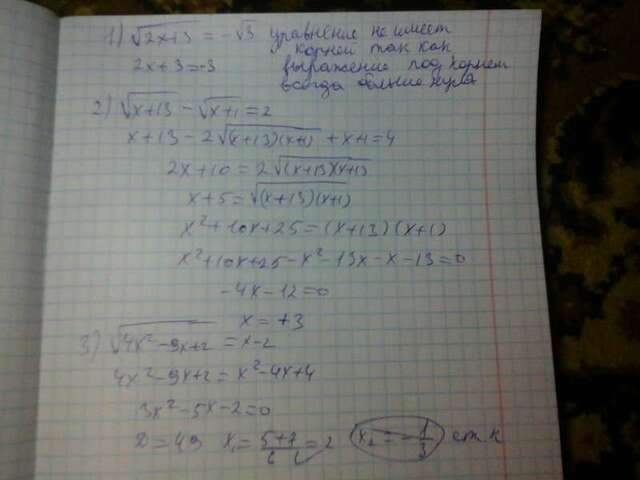 1) √2x+3 = -√3 уравнение не имеет
корней так как
2x+3=-3 выражение под корнем
всегда больше нуля
2) √x+13 - √x+1 = 2
x+13-2√(x+13)(x+1) + x+1=4
2x+10 = 2√(x+13)(x+1)
x+5=√(x+13)(x+1)
x²+10x+25=(x+13)(x+1)
x²+10x+25-x²-13x-x-13=0
-4x-12=0
x=+3
3) √4x²-9x+2 = x-2
4x²-9x+2=x²-4x+4
3x²-5x-2=0
D=49 x₁=5+7/6=2 x₂=-1/3